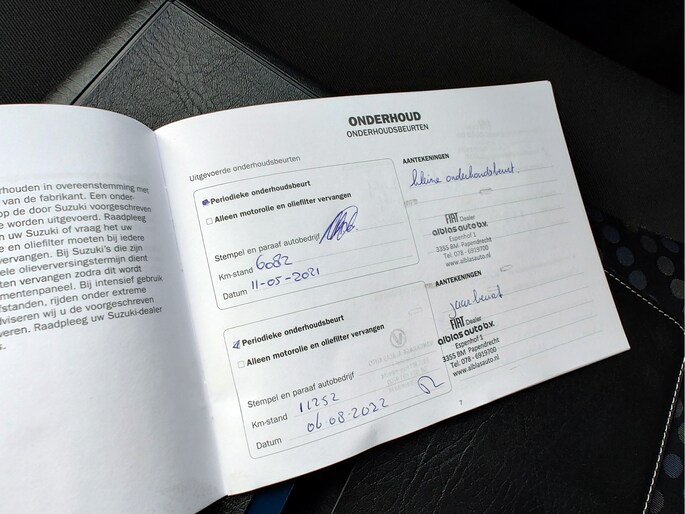 rhouden in overeenstemming met
van de fabrikant. Een onder-
op de door Suzuki voorgeschreven
e worden uitgevoerd. Raadpleeg
n uw Suzuki of vraag het uw
e en oliefilter moeten bij iedere
vervangen. Bij Suzuki's die zijn
ele olieverversingstermijn dient
ten vervangen zodra dit wordt
mentenpaneel. Bij intensief gebruik
fstanden, rijden onder extreme
dviseren wij u de voorgeschreven
veren. Raadpleeg uw Suzuki-dealer
s.
ONDERHOUD
ONDERHOUDSBEURTEN
Uitgevoerde onderhoudsbeurten
Periodieke onderhoudsbeurt
Alleen motorolie en oliefilter vervangen
Stempel en paraaf autobedrijf
Km-stand 6082
Datum 11-05-2021
AANTEKENINGEN
kleine onderhoudsbeurt.
FIAT Dealer
alblas auto b.v.
Espenhof 1
3355 BM - Papendrecht
Tel. 078 - 6919700
www.alblasauto.nl
Periodieke onderhoudsbeurt
Alleen motorolie en oliefilter vervangen
Stempel en paraaf autobedrijf
Km-stand 11252
Datum 06 08 2022
AANTEKENINGEN
jaarbeurt
FIAT Dealer
alblas auto b.v.
Espenhof 1
3355 BM Papendrecht
Tel. 078 - 6919700
www.alblasauto.nl
7